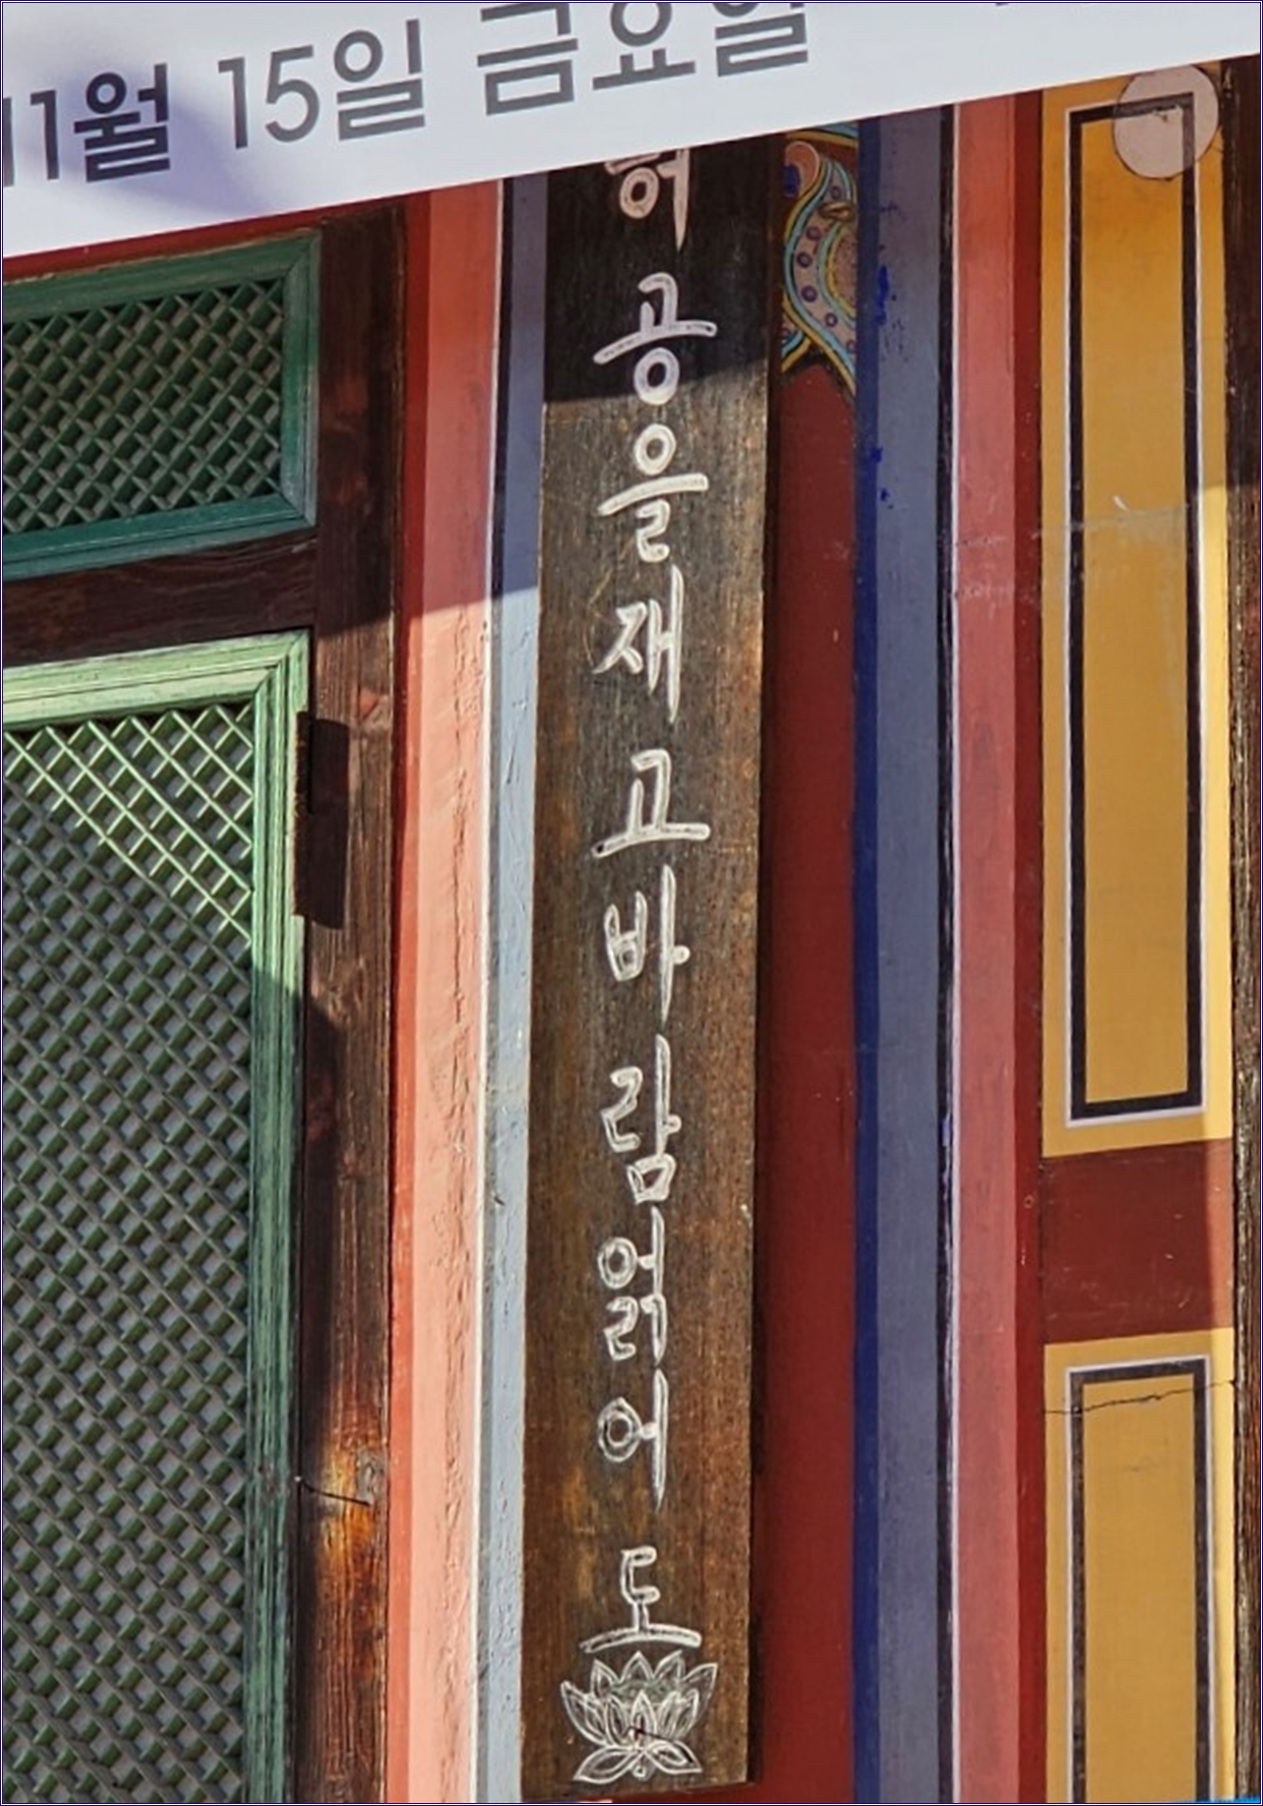 11월 15일 금요일
허공을재고바람얽어도